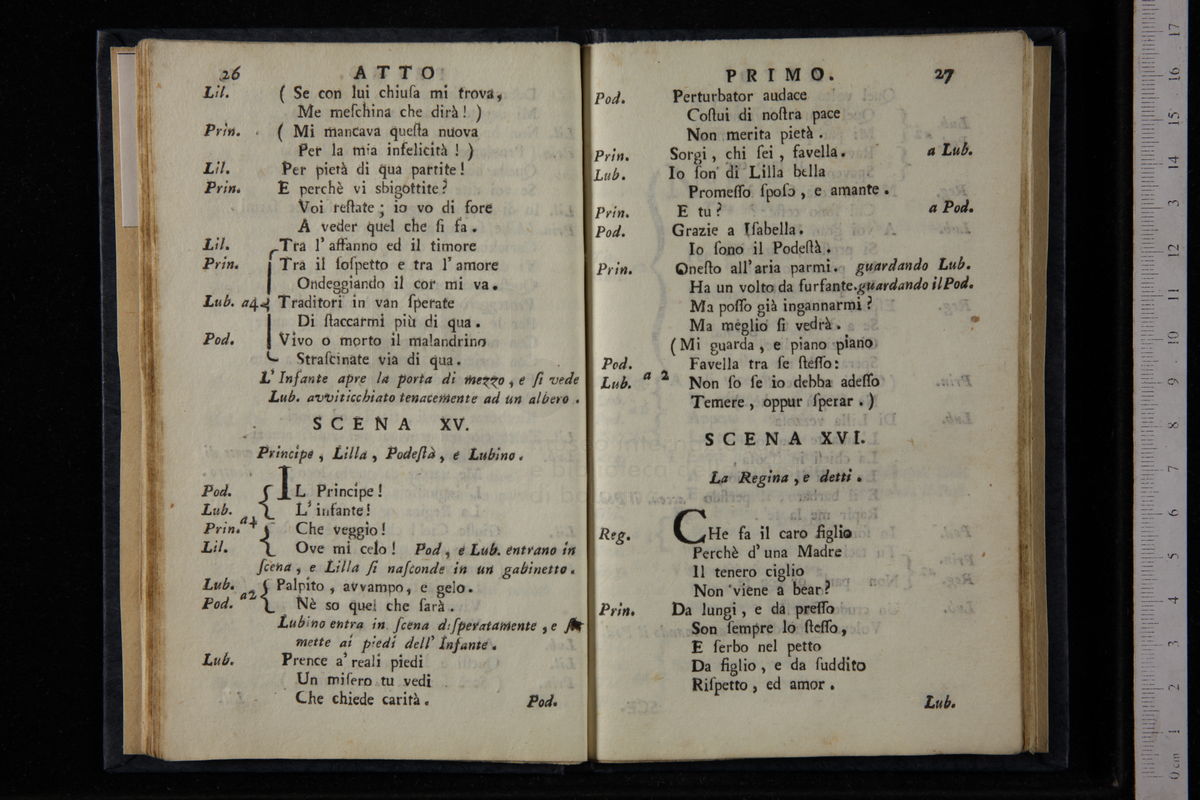 26 ATTO
Lil. ( Se con lui chiuſa mi trova,
Me meſchina che dirà! )
Prin. ( Mi mancava queſta nuova
Per la mia infelicità! )
Lil. Per pietà di qua partite!
Prin. E perchè vi sbigottite?
Voi reſtate; io vo di fore
A veder quel che ſi fa.
Lil. Tra l'affanno ed il timore
Prin. Tra il ſoſpetto e tra l'amore
Ondeggiando il cor mi va.
Lub. a4 Traditori in van ſperate
Di ſtaccarmi più di qua.
Pod. Vivo o morto il malandrino
Straſcinate via di qua.
L'Infante apre la porta di mezzo, e ſi vede
Lub. avviticchiato tenacemente ad un albero.
SCENA XV.
Principe, Lilla, Podeſtà, e Lubino.
Pod. IL Principe!
Lub. L'infante!
Prin. a4 Che veggio!
Lil. Ove mi celo! Pod, e Lub. entrano in
ſcena, e Lilla ſi naſconde in un gabinetto.
Lub. a2 Palpito, avvampo, e gelo.
Pod. Nè so quel che ſarà.
Lubino entra in ſcena diſperatamente, e ſi
mette ai piedi dell'Infante.
Lub. Prence a' reali piedi
Un miſero tu vedi
Che chiede carità. Pod.
PRIMO. 27
Pod. Perturbator audace
Coſtui di noſtra pace
Non merita pietà.
Prin. Sorgi, chi ſei, favella. a Lub.
Lub. Io ſon di Lilla bella
Promeſſo ſpoſo, e amante.
Prin. E tu? a Pod.
Pod. Grazie a Iſabella.
Io ſono il Podeſtà.
Prin. Oneſto all'aria parmi. guardando Lub.
Ha un volto da furfante. guardando il Pod.
Ma poſſo già ingannarmi?
Ma meglio ſi vedrà.
(Mi guarda, e piano piano
Pod. Favella tra ſe ſteſſo:
Lub. a 2 Non ſo ſe io debba adeſſo
Temere, oppur ſperar.)
SCENA XVI.
La Regina, e detti.
Reg. CHe fa il caro figlio
Perchè d'una Madre
Il tenero ciglio
Non viene a bear?
Prin. Da lungi, e da preſſo
Son ſempre lo ſteſſo,
E ſerbo nel petto
Da figlio, e da ſuddito
Riſpetto, ed amor.
Lub.
0 cm 1 2 3 4 5 6 7 8 9 10 11 12 13 14 15 16 17